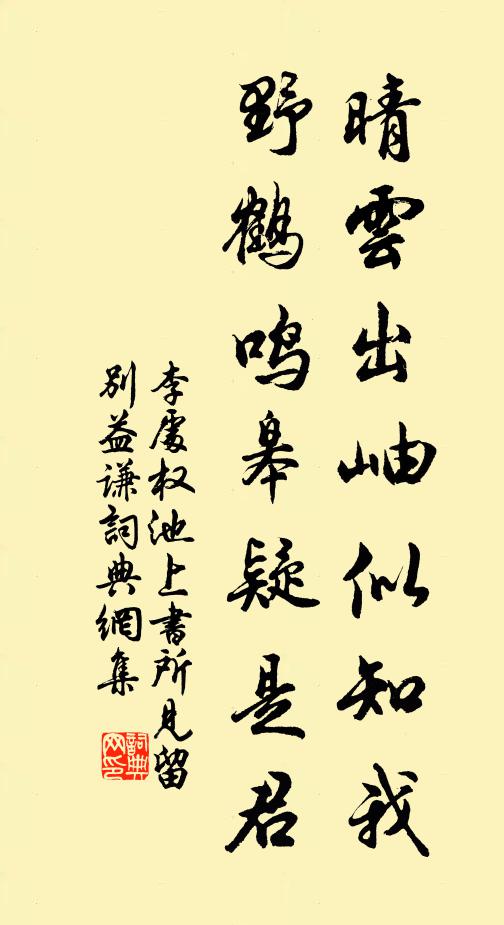 晴雲出岫似知我
野鶴鳴皋疑是君
李處权池上書所見留
别益谦詞典網集
詞典网印